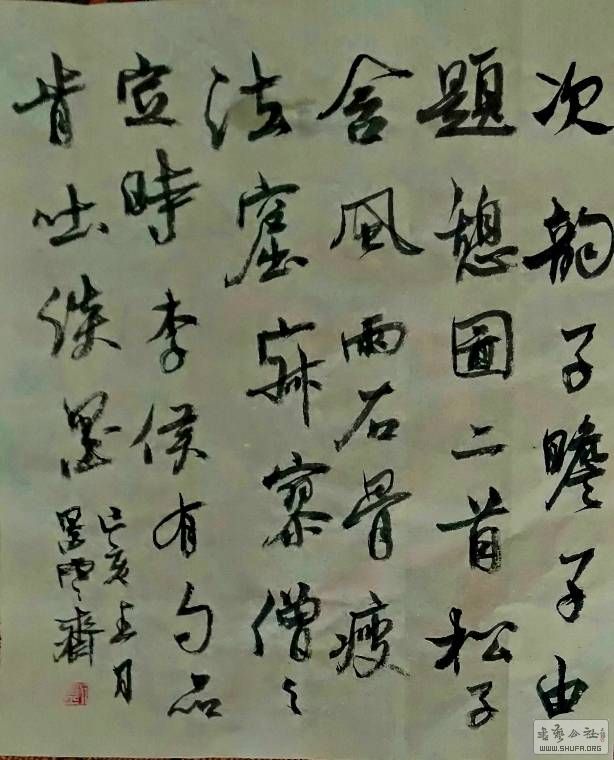 次韵子瞻子由
題憩圖二首松子
含風雨石骨瘦
法窟寂寥僧々
定時李侯有句品
肯吐淡墨
己亥月
墨雲齋
书艺公社
WWW.SHUFA.ORG